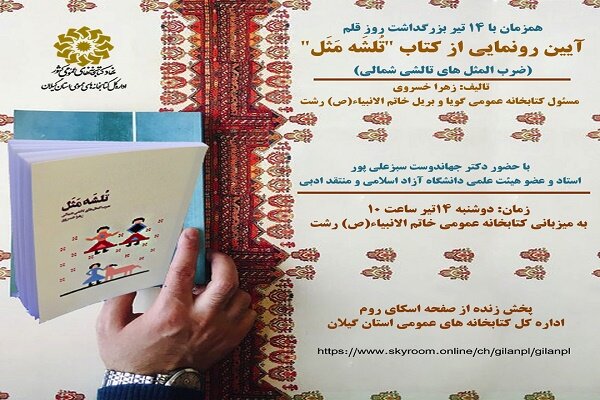 همزمان با ۱۴ تیر بزرگداشت روز قلم
آیین رونمایی از کتاب "تُلشَه مَثَل"
(ضرب المثل های تالشی شمالی)
تالیف: زهرا خسروی
مسئول کتابخانه عمومی گویا و بریل خاتم الانبیاء(ص) رشت
با حضور دکتر جهاندوست سبزعلی پور
استاد و عضو هیئت علمی دانشگاه آزاد اسلامی و منتقد ادبی
زمان: دوشنبه ۱۴تیر ساعت ۱۰
به میزبانی کتابخانه عمومی خاتم الانبیاء(ص) رشت
پخش زنده از صفحه اسکای روم
اداره کل کتابخانه های عمومی استان گیلان
https://www.skyroom.online/ch/gilanpl/gilanpl
نهاد کتابخانه‌های عمومی کشور
اداره کل کتابخانه‌های عمومی استان گیلان
تُلشَه مَثَل